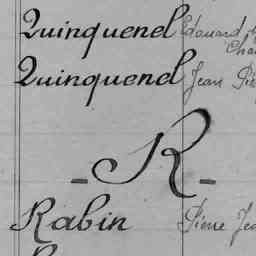 Quinquenel Edouard
Quinquenel Jean
- R -
Rabin Pierre